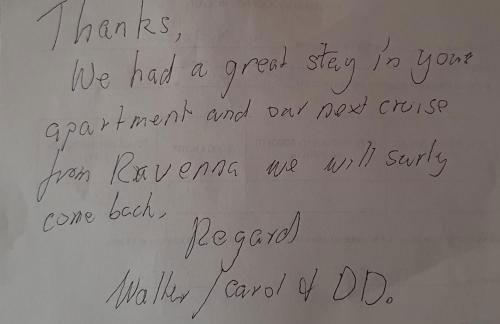 Thanks,
We had a great stay in your
apartment and our next cruise
from Ravenna we will surly
come back,
Regard
Walter / Carol & DD.